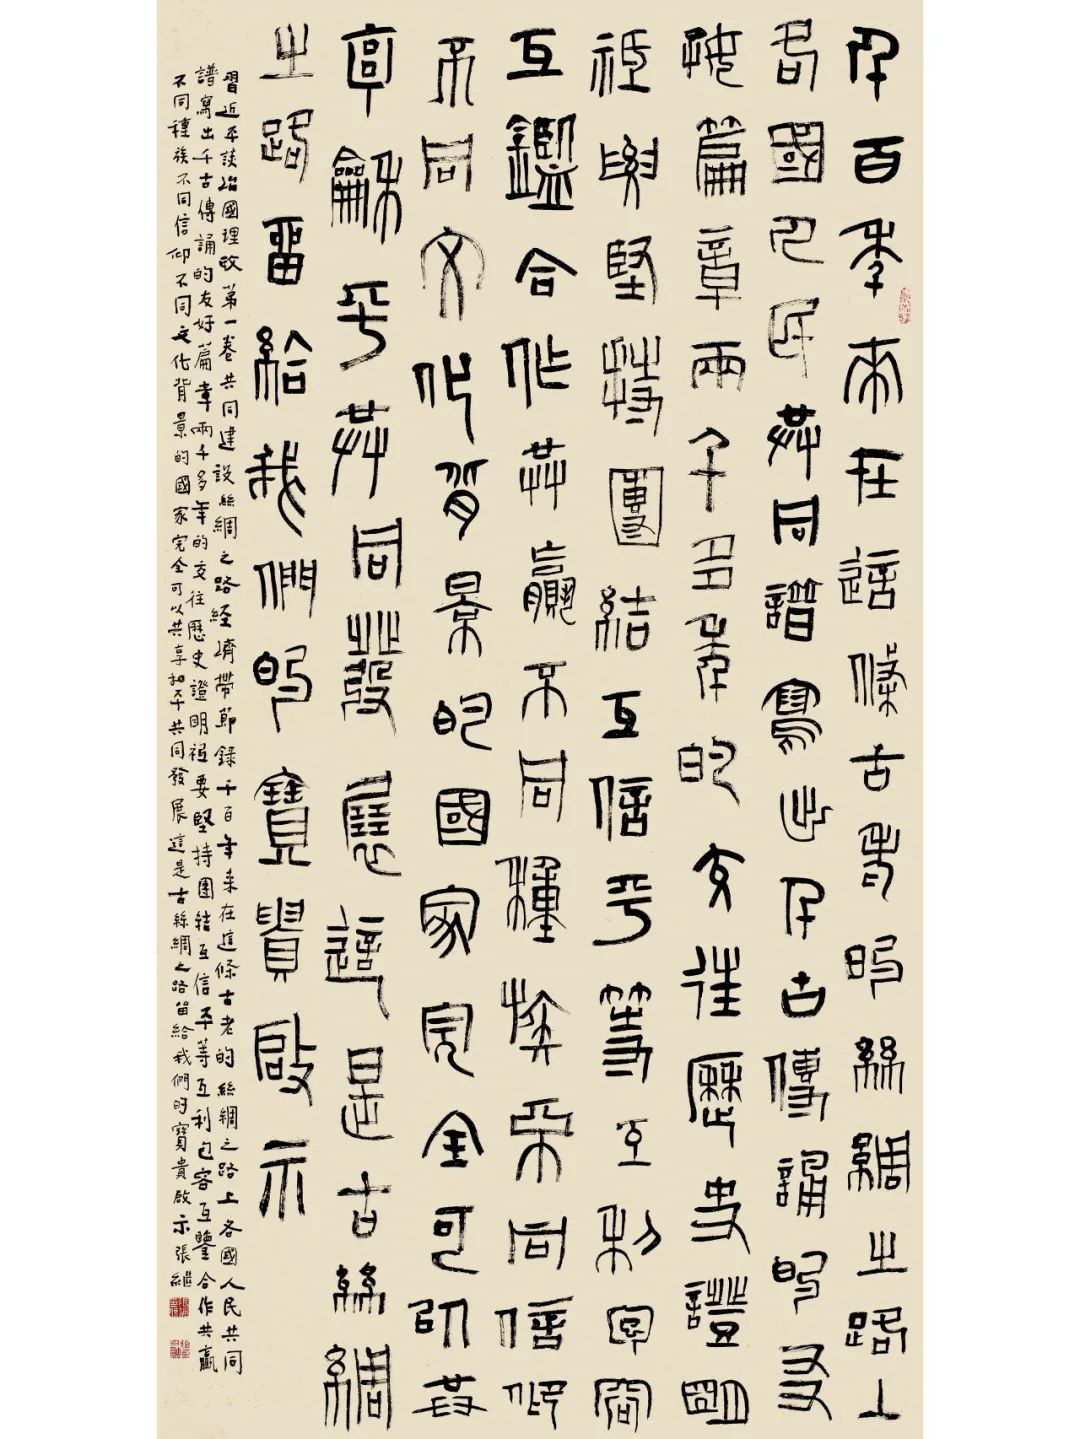 千百年來在這條古老的絲綢之路上
各國人民共同譜寫出千古傳誦的友
好篇章兩千多年的交往歷史證明
祇要堅持團結互信平等互利包容
互鑑合作共贏不同種族不同信仰
不同文化背景的國家完全可以共
享龢平共同發展這是古絲綢
之路留給我們的寶貴啟示
習近平談治國理政第一卷共同建設絲綢之路經濟帶節錄千百年來在這條古老的絲綢之路上各國人民共同
譜寫出千古傳誦的友好篇章兩千多年的交往歷史證明祇要堅持團結互信平等互利包容互鑒合作共贏
不同種族不同信仰不同文化背景的國家完全可以共享和平共同發展這是古絲綢之路留給我們的寶貴啟示張繼